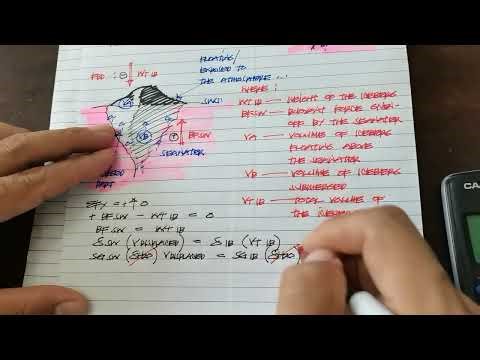 FLOATING/
EXPOSED TO
THE ATMOSPHERE ...
FBD: ⊖ WT IB
WHERE:
VA
SWSL
WT IB — WEIGHT OF THE ICEBERG
BFSW — BUOYANT FORCE EXER-
TED BY THE SEAWATER
⊕ BFSW
VB
SEAWATER
VA — VOLUME OF ICEBERG
FLOATING ABOVE
THE SEAWATER
PART
VB — VOLUME OF ICEBERG
SUBMERGED
VT IB — TOTAL VOLUME OF
THE
+ BFSW − WT IB = 0
BF SW = WT IB
γ SW (V DISPLACED) = γ IB (VT IB)
SG SW (γH2O) V DISPLACED = SG IB (γH2O)
CA